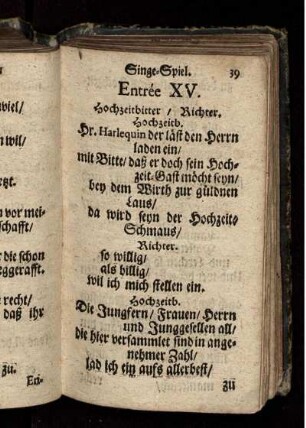 viel/
n wil/
tzt.
n vor mei-
schafft/
r die schon
eggerafft.
e recht/
daß ihr
zu.
Eri-
Singe-Spiel. 39
Entrée XV.
Hochzeitbitter / Richter.
Hochzeitb.
Hr. Harlequin der läst den Herrn
laden ein/
mit Bitte/ daß er doch sein Hoch-
zeit-Gast möcht seyn/
bey dem Wirth zur güldnen
Laus/
da wird seyn der Hochzeit-
Schmaus/
Richter.
so willig/
als billig/
wil ich mich stellen ein.
Hochzeitb.
Die Jungfern/ Frauen/ Herrn
und Junggesellen all/
die hier versammlet sind in ange-
nehmer Zahl/
lad ich ein aufs allerbest/
zu